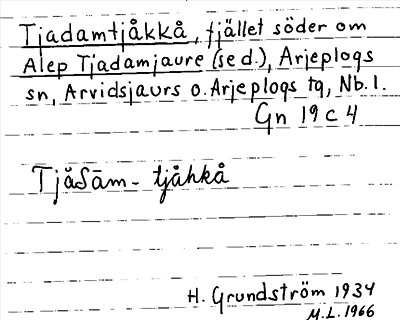 Tjadamtjåkkå, fjället söder om
Alep Tjadamjaure (se d.), Arjeplogs
sn, Arvidsjaurs o. Arjeplogs tg, Nb. l.
Gn 19 c 4
Tjăδām- tjåhkå
H. Grundström 1934
M.L. 1966